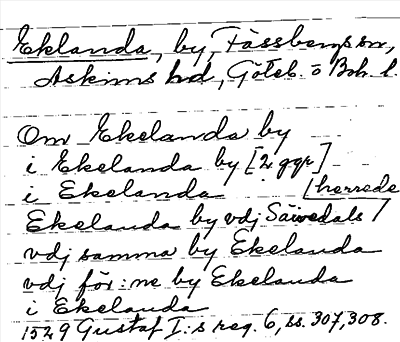 Eklanda, by, Fässbergs sn,
Askims hd, Göteb. o Boh. l.
Om Ekelanda by
i Ekelanda by [2 ggr]
i Ekelanda [herrede
Ekelanda by vdj Säwedals /
vdj samma by Ekelanda
vdj för:ne by Ekelanda
i Ekelanda
1529 Gustaf I:s reg. 6, ss. 307, 308.